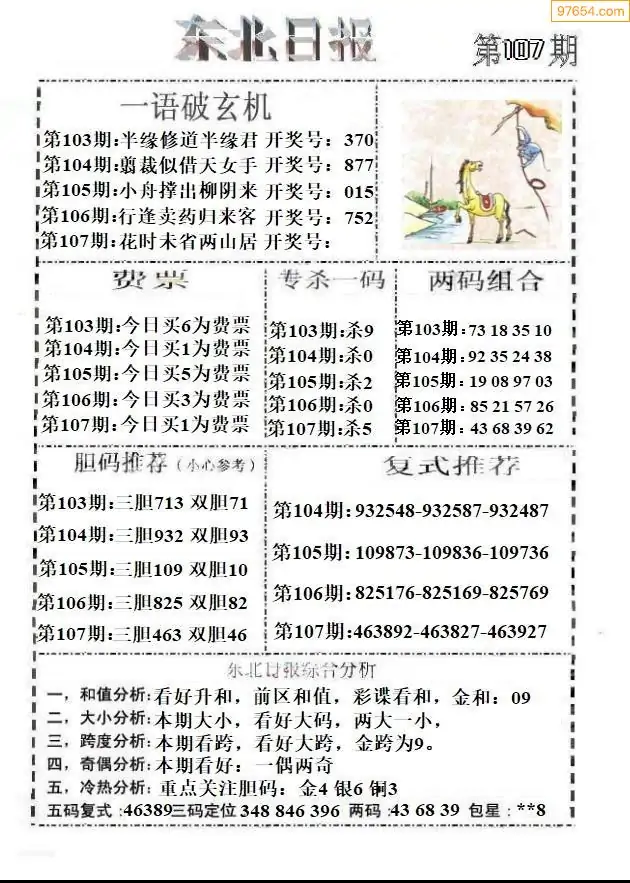 97654.com
东北日报
第107期
一语破玄机
第103期:半缘修道半缘君 开奖号：370
第104期:翦裁似借天女手 开奖号：877
第105期:小舟撑出柳阴来 开奖号：015
第106期:行逢卖药归来客 开奖号：752
第107期:花时未省两山居 开奖号：
费票
第103期:今日买6为费票
第104期:今日买1为费票
第105期:今日买5为费票
第106期:今日买3为费票
第107期:今日买1为费票
专杀一码
第103期:杀9
第104期:杀0
第105期:杀2
第106期:杀0
第107期:杀5
两码组合
第103期:73 18 35 10
第104期:92 35 24 38
第105期:19 08 97 03
第106期:85 21 57 26
第107期:43 68 39 62
胆码推荐（小心参考）
第103期:三胆713 双胆71
第104期:三胆932 双胆93
第105期:三胆109 双胆10
第106期:三胆825 双胆82
第107期:三胆463 双胆46
复式推荐
第104期:932548-932587-932487
第105期:109873-109836-109736
第106期:825176-825169-825769
第107期:463892-463827-463927
东北日报综合分析
一，和值分析:看好升和，前区和值，彩谍看和，金和：09
二、大小分析:本期大小，看好大码，两大一小，
三，跨度分析:本期看跨，看好大跨，金跨为9。
四，奇偶分析:本期看好：一偶两奇
五，冷热分析：重点关注胆码：金4 银6 铜3
五码复式:46389三码定位 348 846 396 两码:43 68 39 包星：**8